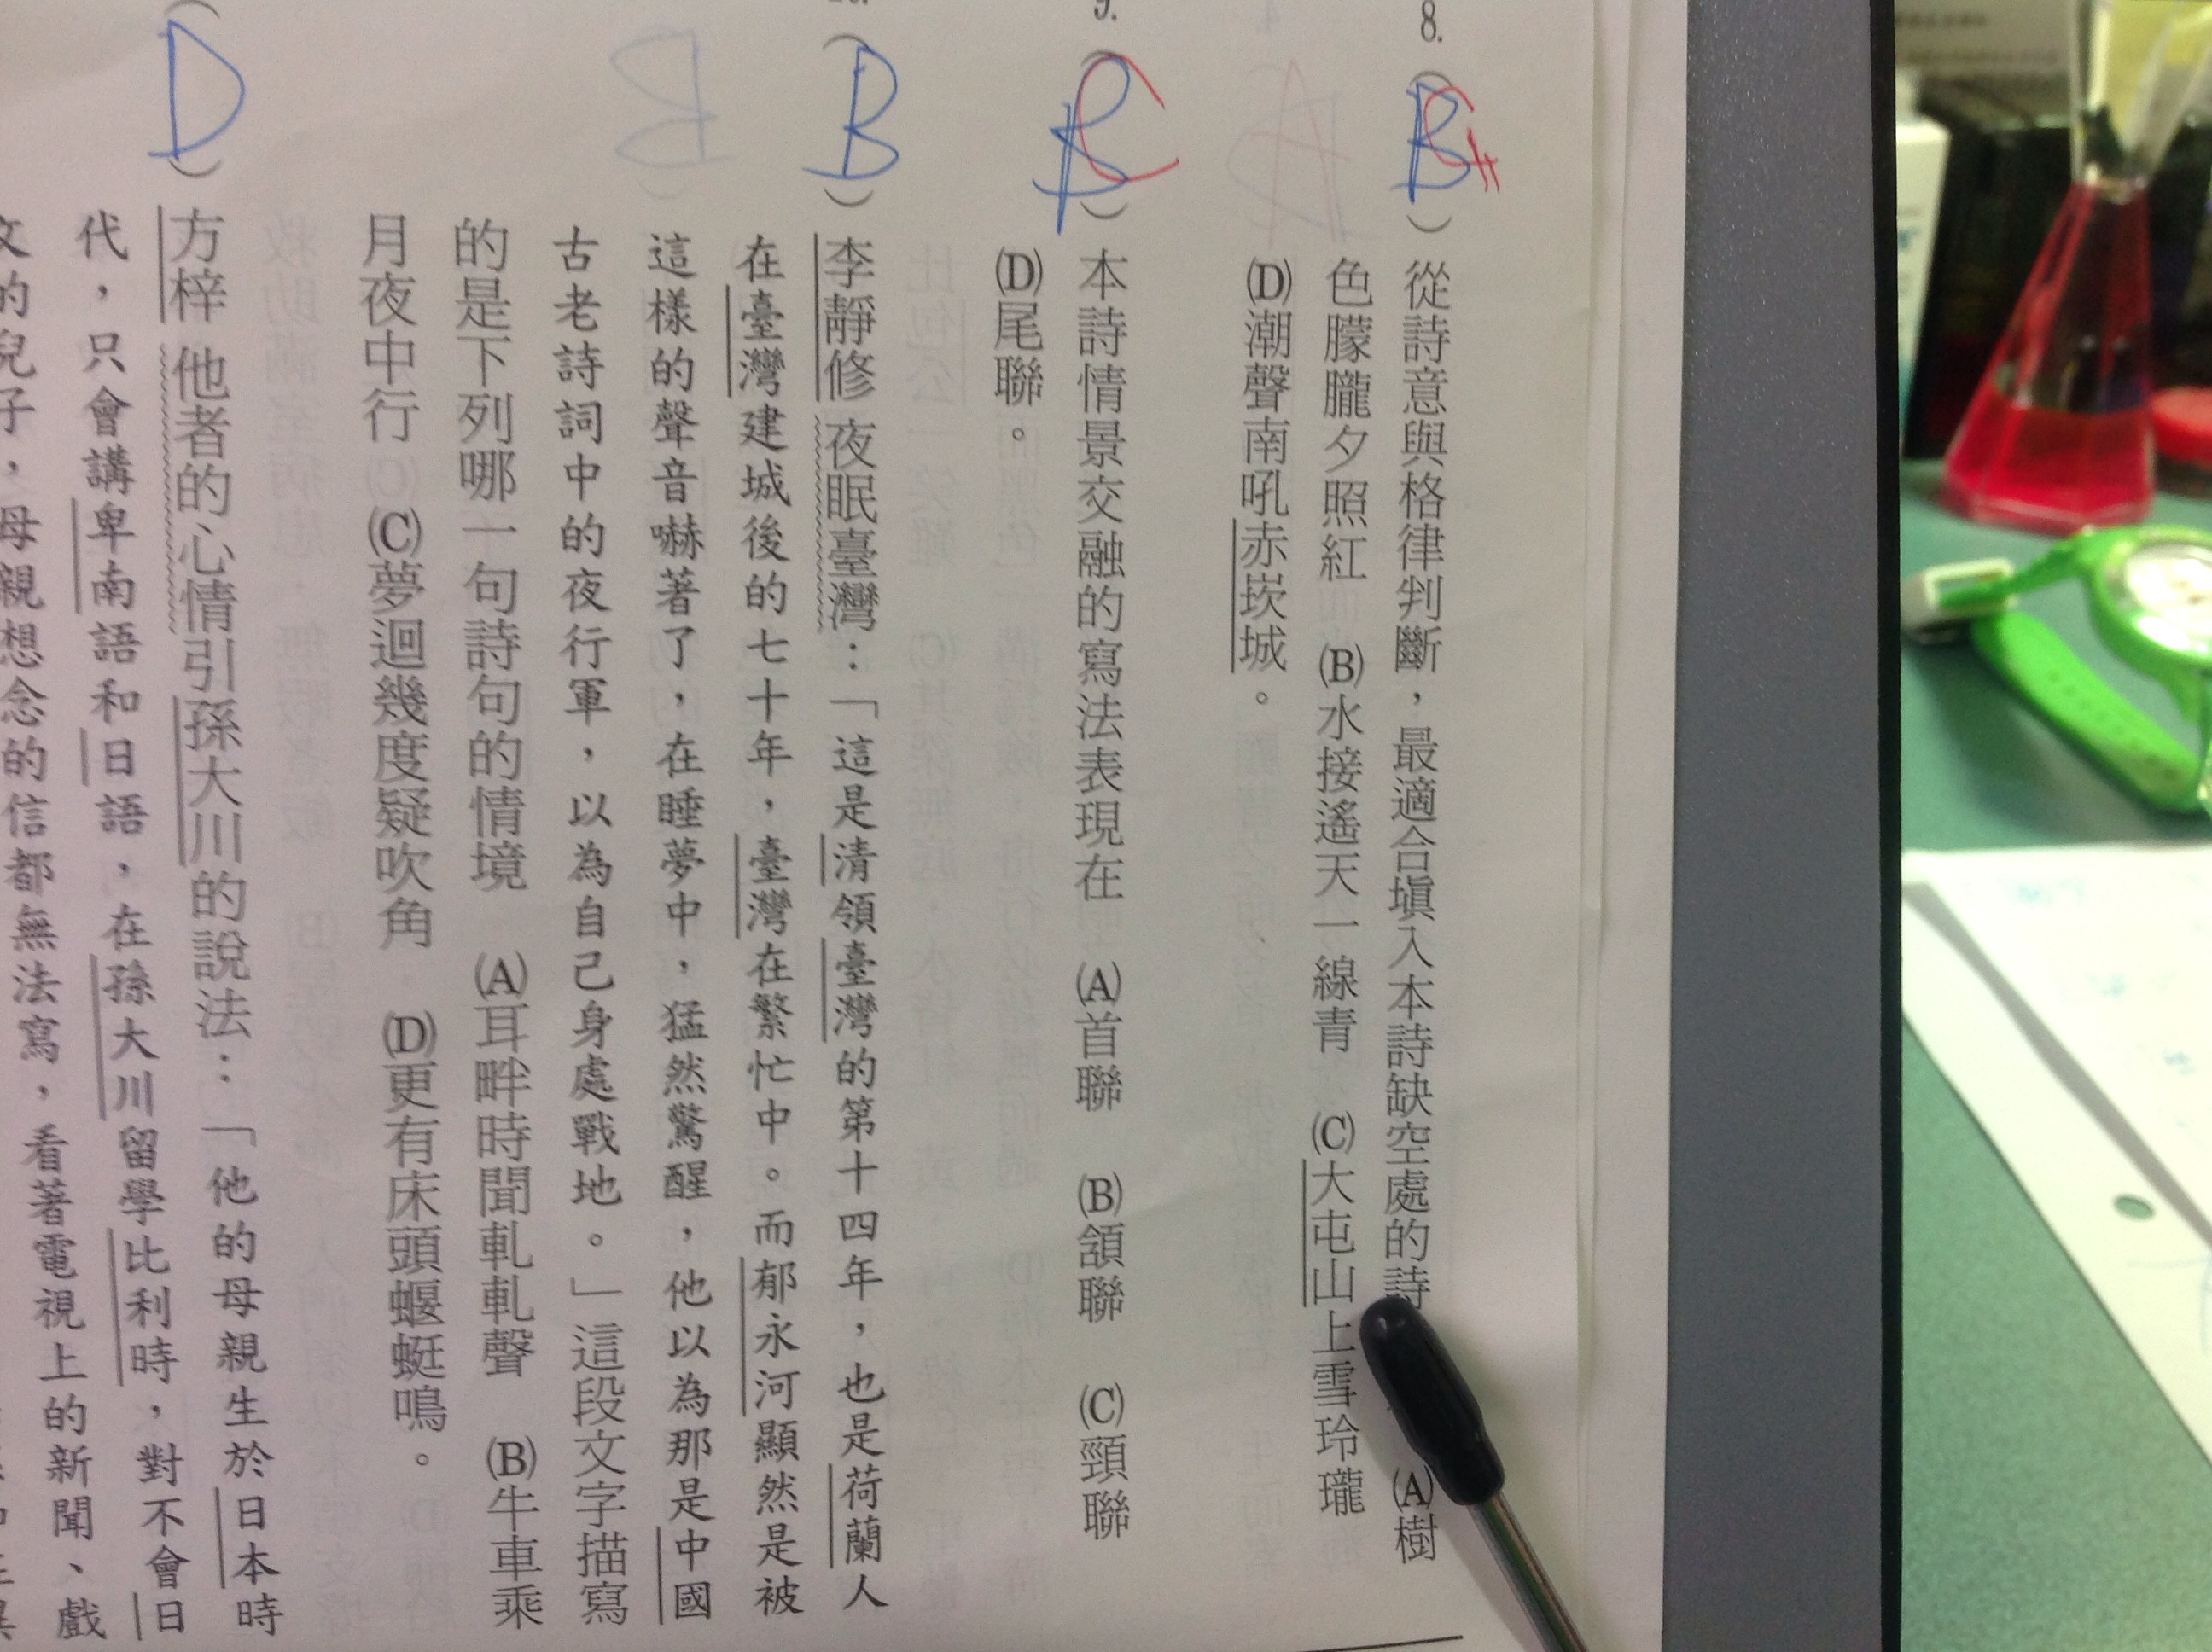 8. ( B C )從詩意與格律判斷，最適合填入本詩缺空處的詩 (A)樹
色朦朧夕照紅 (B)水接遙天一線青 (C)大屯山上雪玲瓏
(D)潮聲南吼赤崁城。
9. ( B C )本詩情景交融的寫法表現在 (A)首聯 (B)頷聯 (C)頸聯
(D)尾聯。
( B )李靜修 夜眠臺灣：「這是清領臺灣的第十四年，也是荷蘭人
在臺灣建城後的七十年，臺灣在繁忙中。而郁永河顯然是被
這樣的聲音嚇著了，在睡夢中，猛然驚醒，他以為那是中國
古老詩詞中的夜行軍，以為自己身處戰地。」這段文字描寫
的是下列哪一句詩句的情境 (A)耳畔時聞軋軋聲 (B)牛車乘
月夜中行 (C)夢迴幾度疑吹角 (D)更有床頭蝘蜓鳴。
( D )方梓 他者的心情引孫大川的說法：「他的母親生於日本時
代，只會講卑南語和日語，在孫大川留學比利時，對不會日
文的兒子，母親想念的信都無法寫，看著電視上的新聞、戲